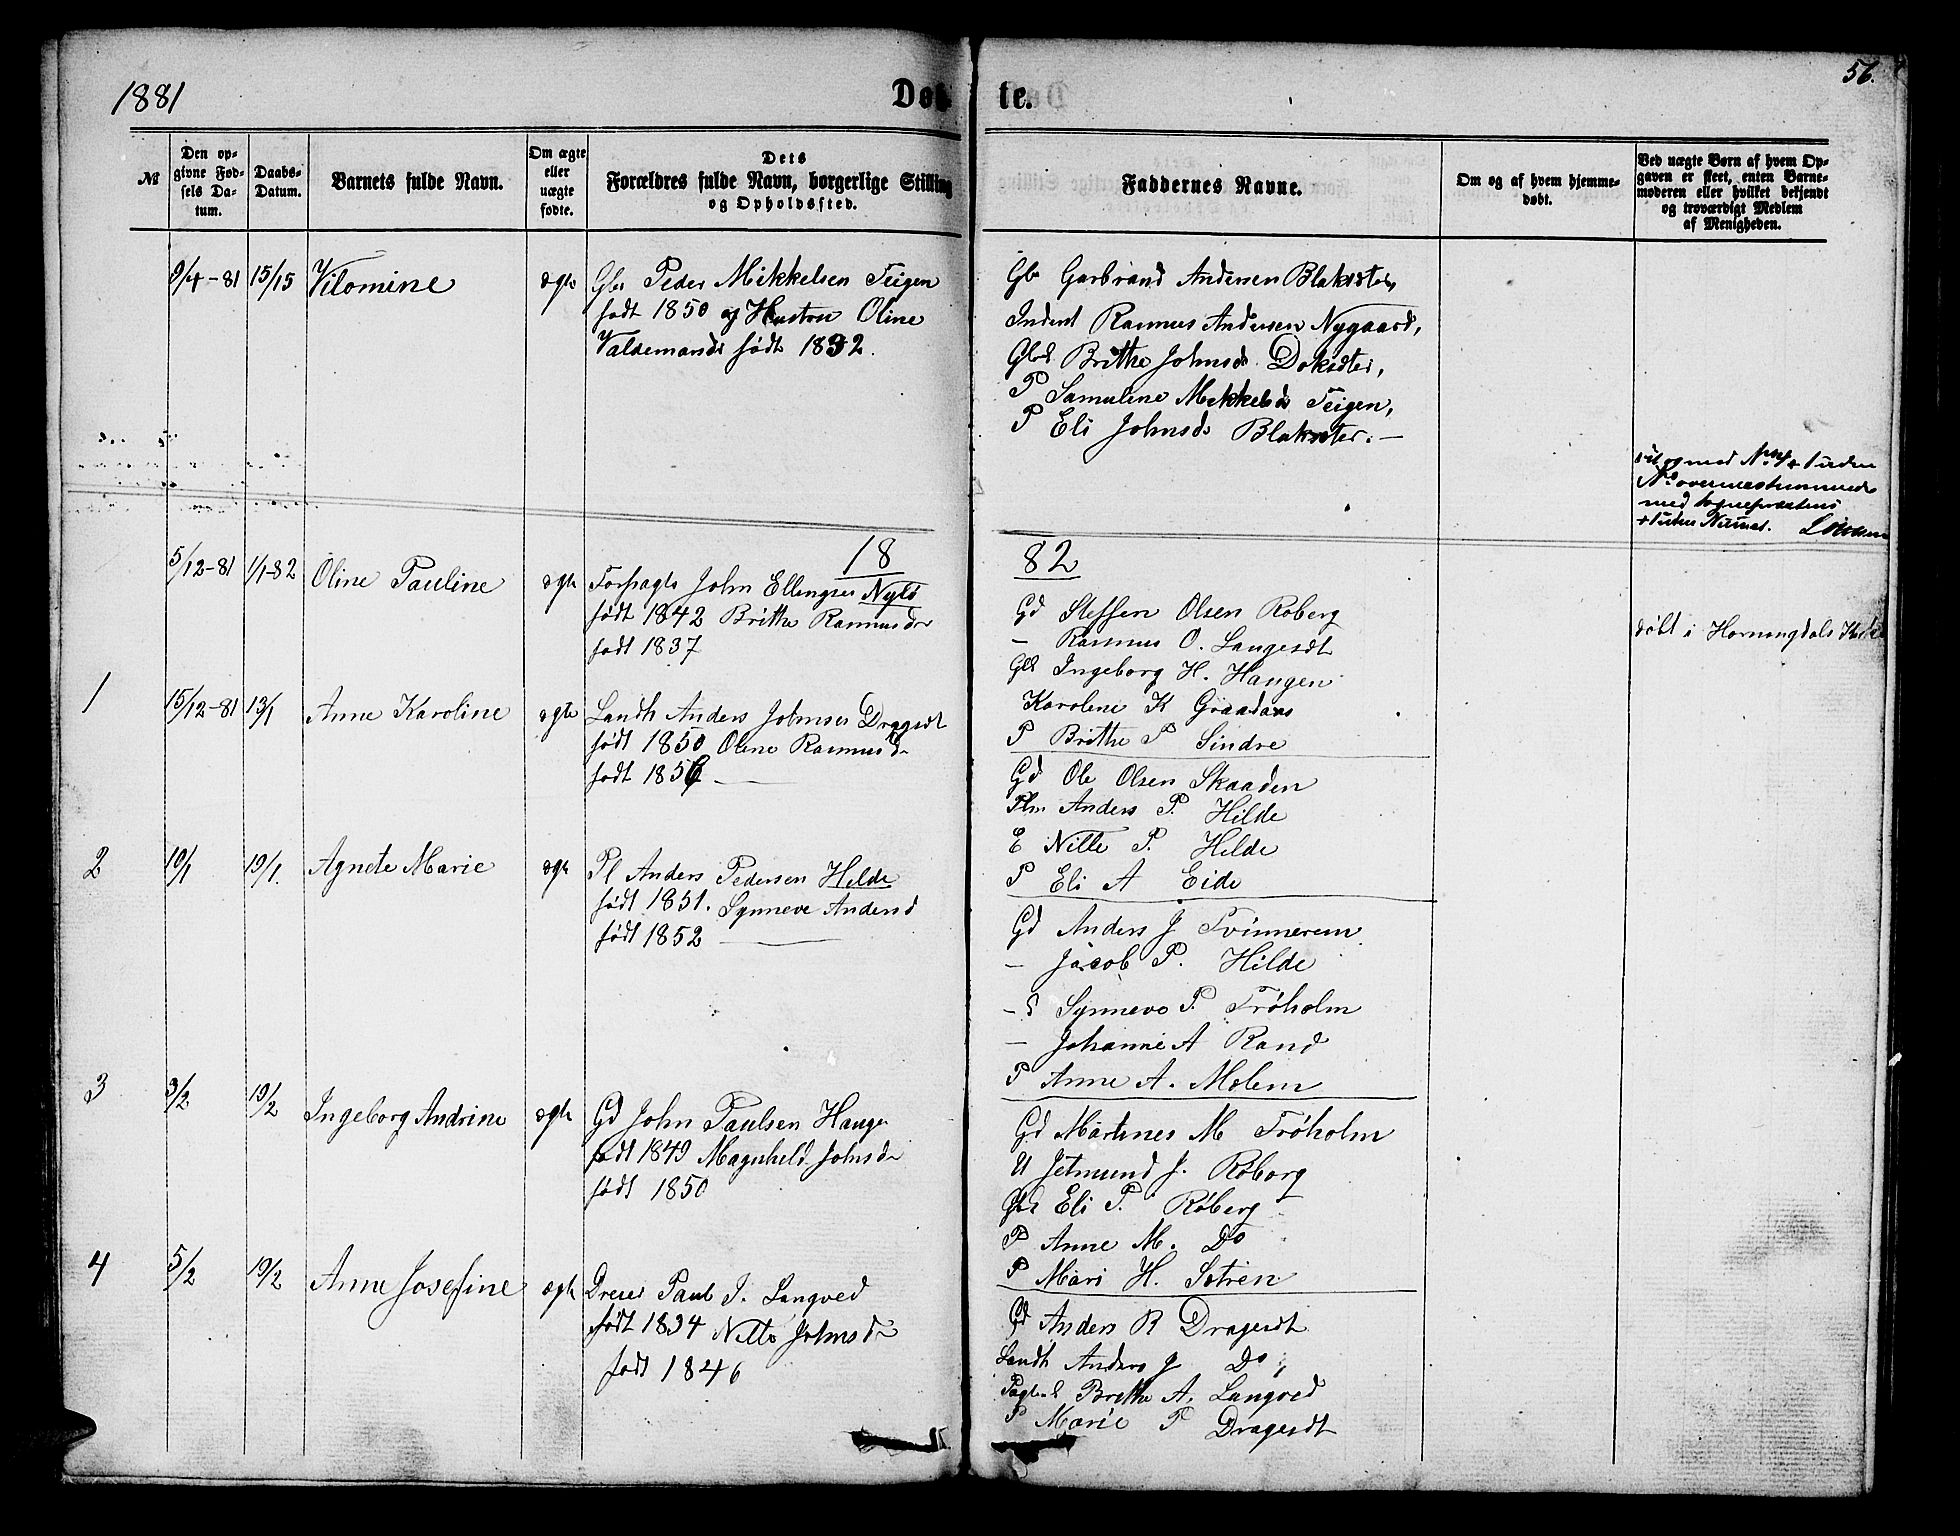 1881
Døb te.
56.
№
Den opgivne Fødsels Datum.
Daabs-Datum.
Barnets fulde Navn.
Om ægte eller uægte fødte.
Dets Forældres fulde Navn, borgerlige Stilling og Opholdssted.
Faddernes Navne.
Om og af hvem hjemmedøbt.
Ved uægte Børn af hvem Opgaven er skeet, enten Barnemoderen eller hvilket bekjendt og troværdigt Medlem af Menigheden.
9/4-81 15/15 Vilomine ægte Gbr Peder Mikkelsen Teigen
født 1850 og Hustru Oline
Valdemarsd født 1832.
Gb Garbrand Andersen Blaksæter,
Inderst Rasmus Andersen Nygaard,
Gbd Brithe Johnsd Doksæter,
P Samuline Mikkelsd Teigen,
P Eli Johnsd Blaksæter.—
18 82
5/12-81 1/1-82 Oline Pauline ægte Forpagte John Ellingsen Nylø
født 1842 Brithe Rasmusdr
født 1837
Gd Steffen Olsen Roberg
— Rasmus O. Langesæt
Gk Ingeborg H. Haugen
Karolene K Graadaas
P Brithe P Sindre
døbt i Hornengdals Kirke
1 15/12-81 13/1 Anne Karoline ægte Landh Anders Johnsen Dragesdt
født 1850 Oline Rasmusd
født 1856 —
Gd Ole Olsen Skaaden
Plm Anders P. Hilde
E Nille P. Hilde
P Eli A Eide
2 10/1 19/1. Agnete Marie ægte Pl Anders Pedersen Hilde
født 1851. Synneve Andersd
født 1852 —
Gd Anders J Tvinnereim
— Jacob P. Hilde
— Synneve P. Frøholm
— Johanne A Rand
P Anne A. Molem
3 3/2 19/2 Ingeborg Andrine ægte Gd John Paulsen Hauge
født 1849 Magnhild Johnsd
født 1850
Gd Martines M Frøholm
U Jetmund J. Roberg
Gbd Eli P. Røberg
P Anne M. Do
P Mari H. Sotren
4 5/2 19/2 Anne Josefine ægte Dreier Paul J. Langved
født 1834 Nille Johnsd
født 1846
Gd Anders R Dragesdt
Landh Anders J Do
Brithe A. Langved
P Marie P Dragesdt